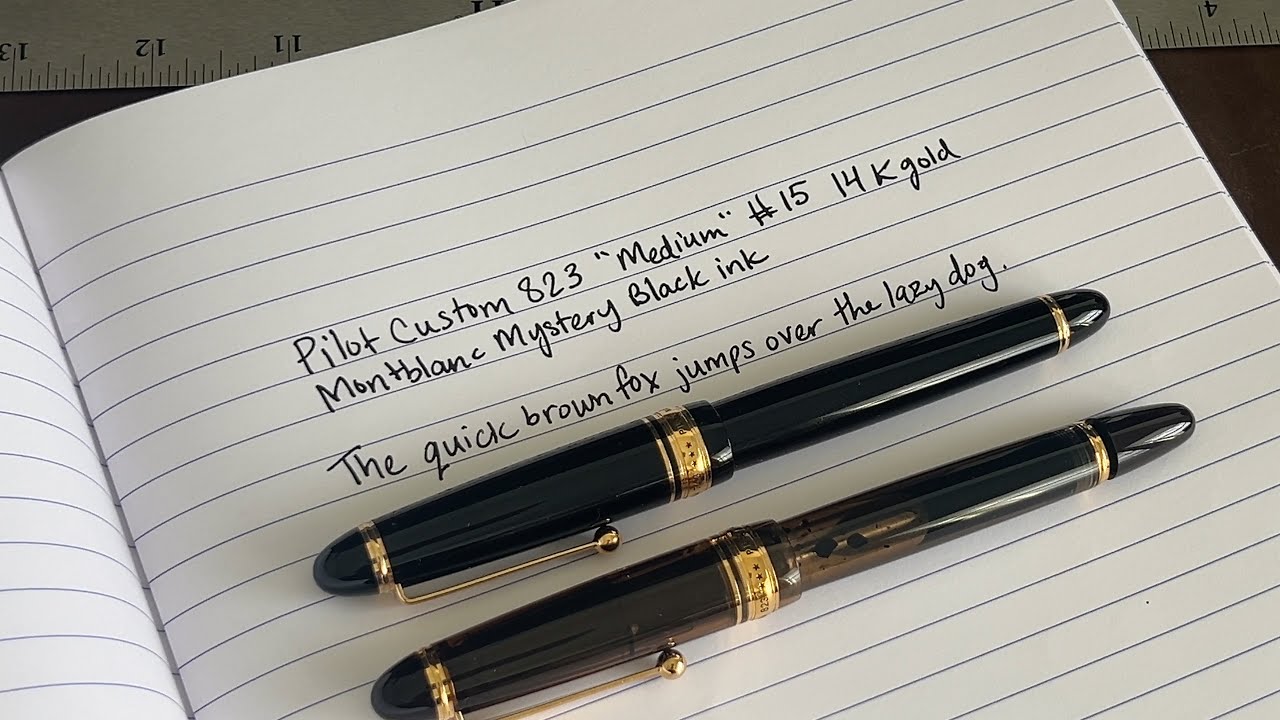 13 12 11 4
Pilot Custom 823 "Medium" #15 14K gold
Montblanc Mystery Black ink
The quick brown fox jumps over the lazy dog.
823